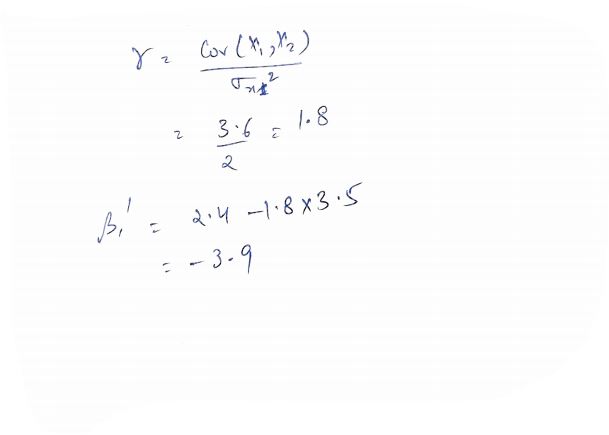 γ = Cov(x₁, x₂) / σₓ₁²
= 3.6 / 2 = 1.8
β₁' = 2.4 - 1.8 × 3.5
= - 3.9